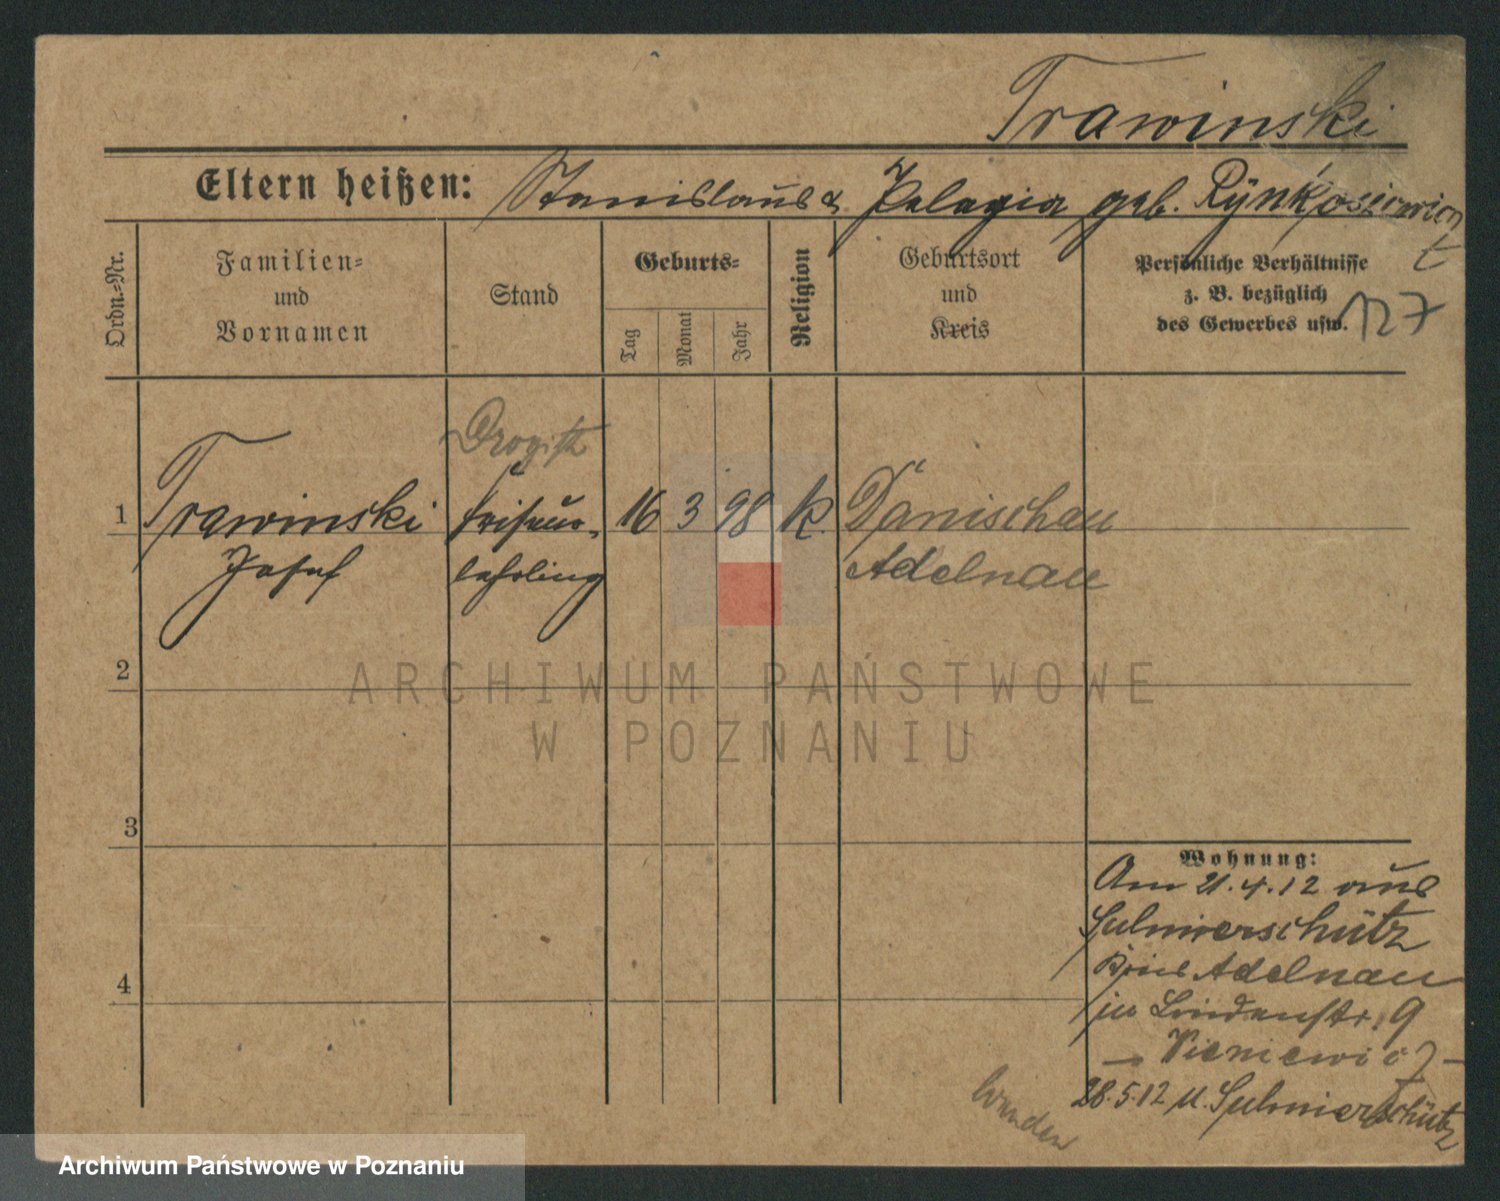 Trawinski
Eltern heißen: Stanislaus & Pelagia geb. Rynkosiewicz
Ordn.-Nr.
Familien-
und
Vornamen
Stand
Geburts-
Tag
Monat
Jahr
Religion
Geburtsort
und
Kreis
Persönliche Verhältnisse
z. B. bezüglich
des Gewerbes usw.
127
Drogist
1 Trawinski Friseur- 16 3 98 k. Danischau
Josef lehrling Adelnau
2
3
4
Wohnung:
Am 21.4.12 aus
Sulmierschütz
Kreis Adelnau
in Lindenstr. 9
28.5.12 n. Sulmierschütz
ARCHIWUM PAŃSTWOWE
W POZNANIU
Archiwum Państwowe w Poznaniu